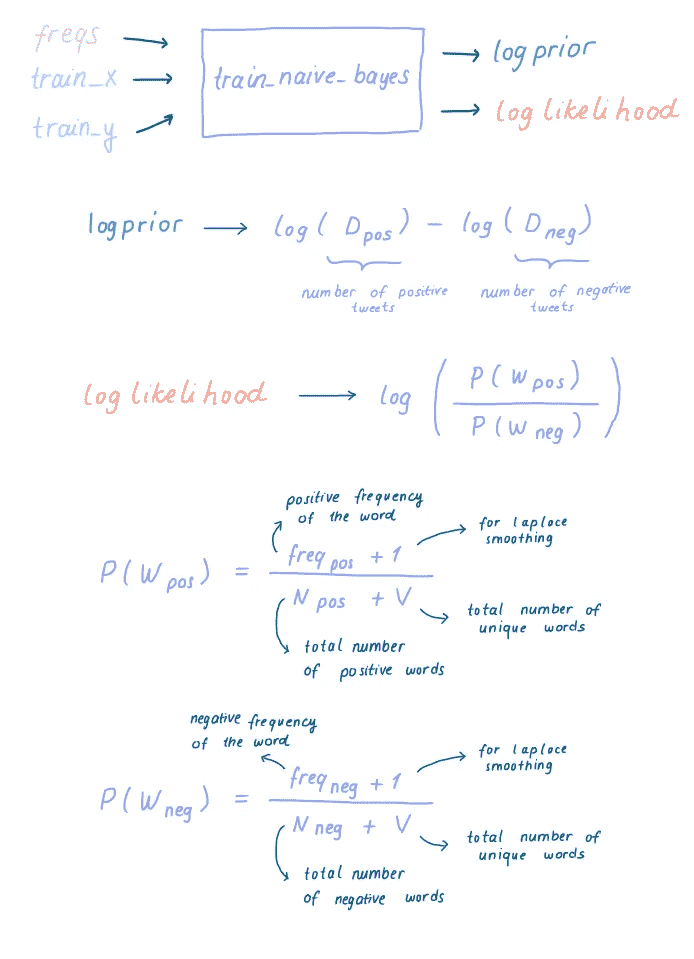 freqs
train_x
train_y
train_naive_bayes
logprior
loglikelihood
logprior → log ( D pos ) − log ( D neg )
number of positive tweets
number of negative tweets
loglikelihood → log ( P ( W pos ) / P ( W neg ) )
positive frequency
of the word
for laplace
smoothing
P ( W pos ) = freq pos + 1 / N pos + V
total number of
unique words
total number
of positive words
negative frequency
of the word
for laplace
smoothing
P ( W neg ) = freq neg + 1 / N neg + V
total number of
unique words
total number
of negative words